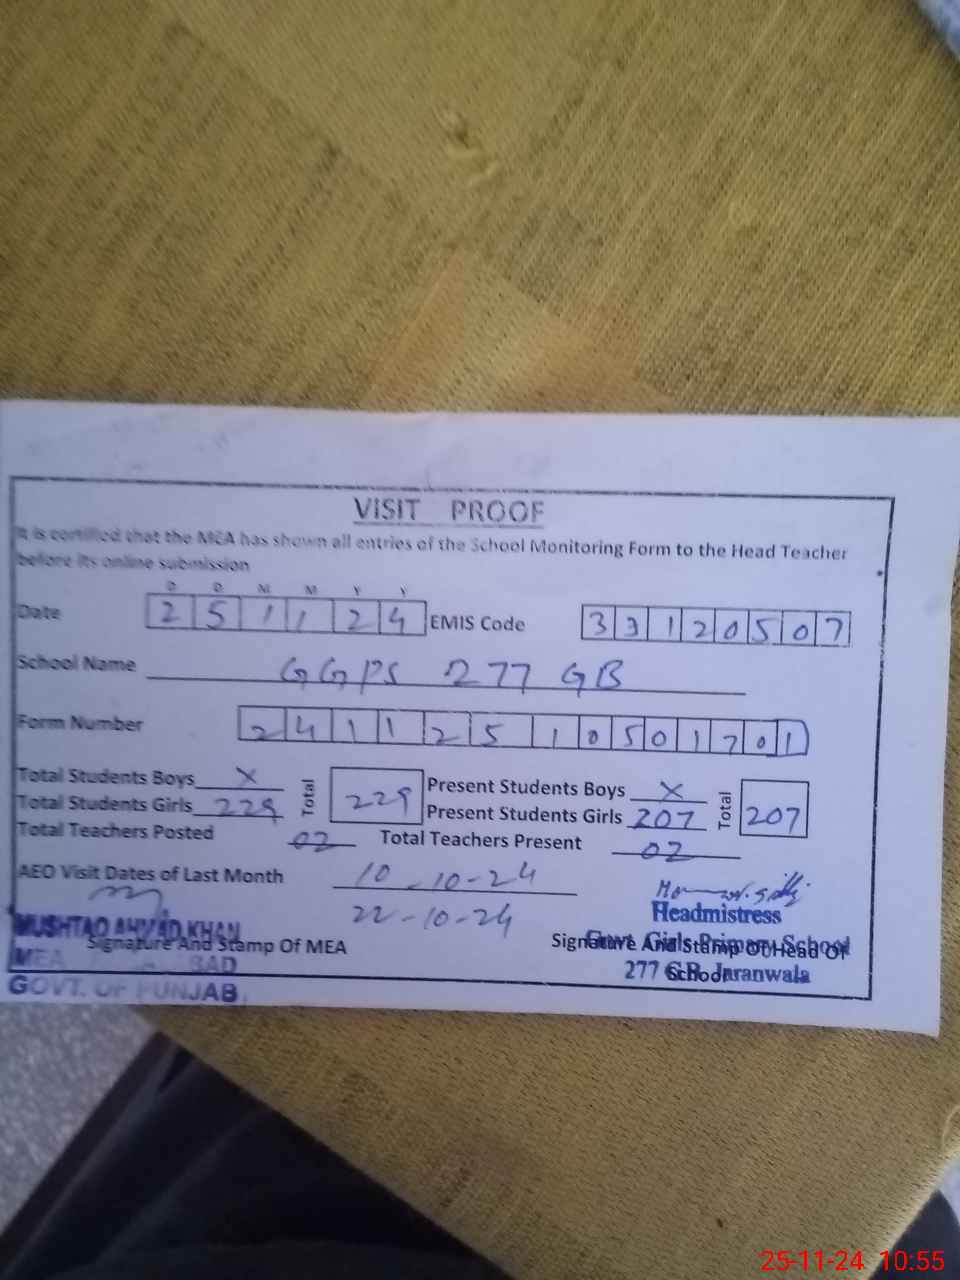 VISIT PROOF
It is certified that the MEA has shown all entries of the School Monitoring Form to the Head Teacher
before its online submission
D D M M Y Y
Date 2 5 1 1 2 4 EMIS Code 3 3 1 2 0 5 0 7
School Name GGPS 277 GB
Form Number 2 4 1 1 2 5 1 0 5 0 1 7 0 1
Total Students Boys X Total 229 Present Students Boys X Total 207
Total Students Girls 229 Present Students Girls 207
Total Teachers Posted 02 Total Teachers Present 02
AEO Visit Dates of Last Month 10-10-24
22-10-24
MUSHTAQ AHMAD KHAN
Signature And Stamp Of MEA
MEA BAD
GOVT. OF PUNJAB
Headmistress
Govt. Girls Primary School
Signature And Stamp Of Head Of
School
277 G.B. Jaranwala
25-11-24 10:55